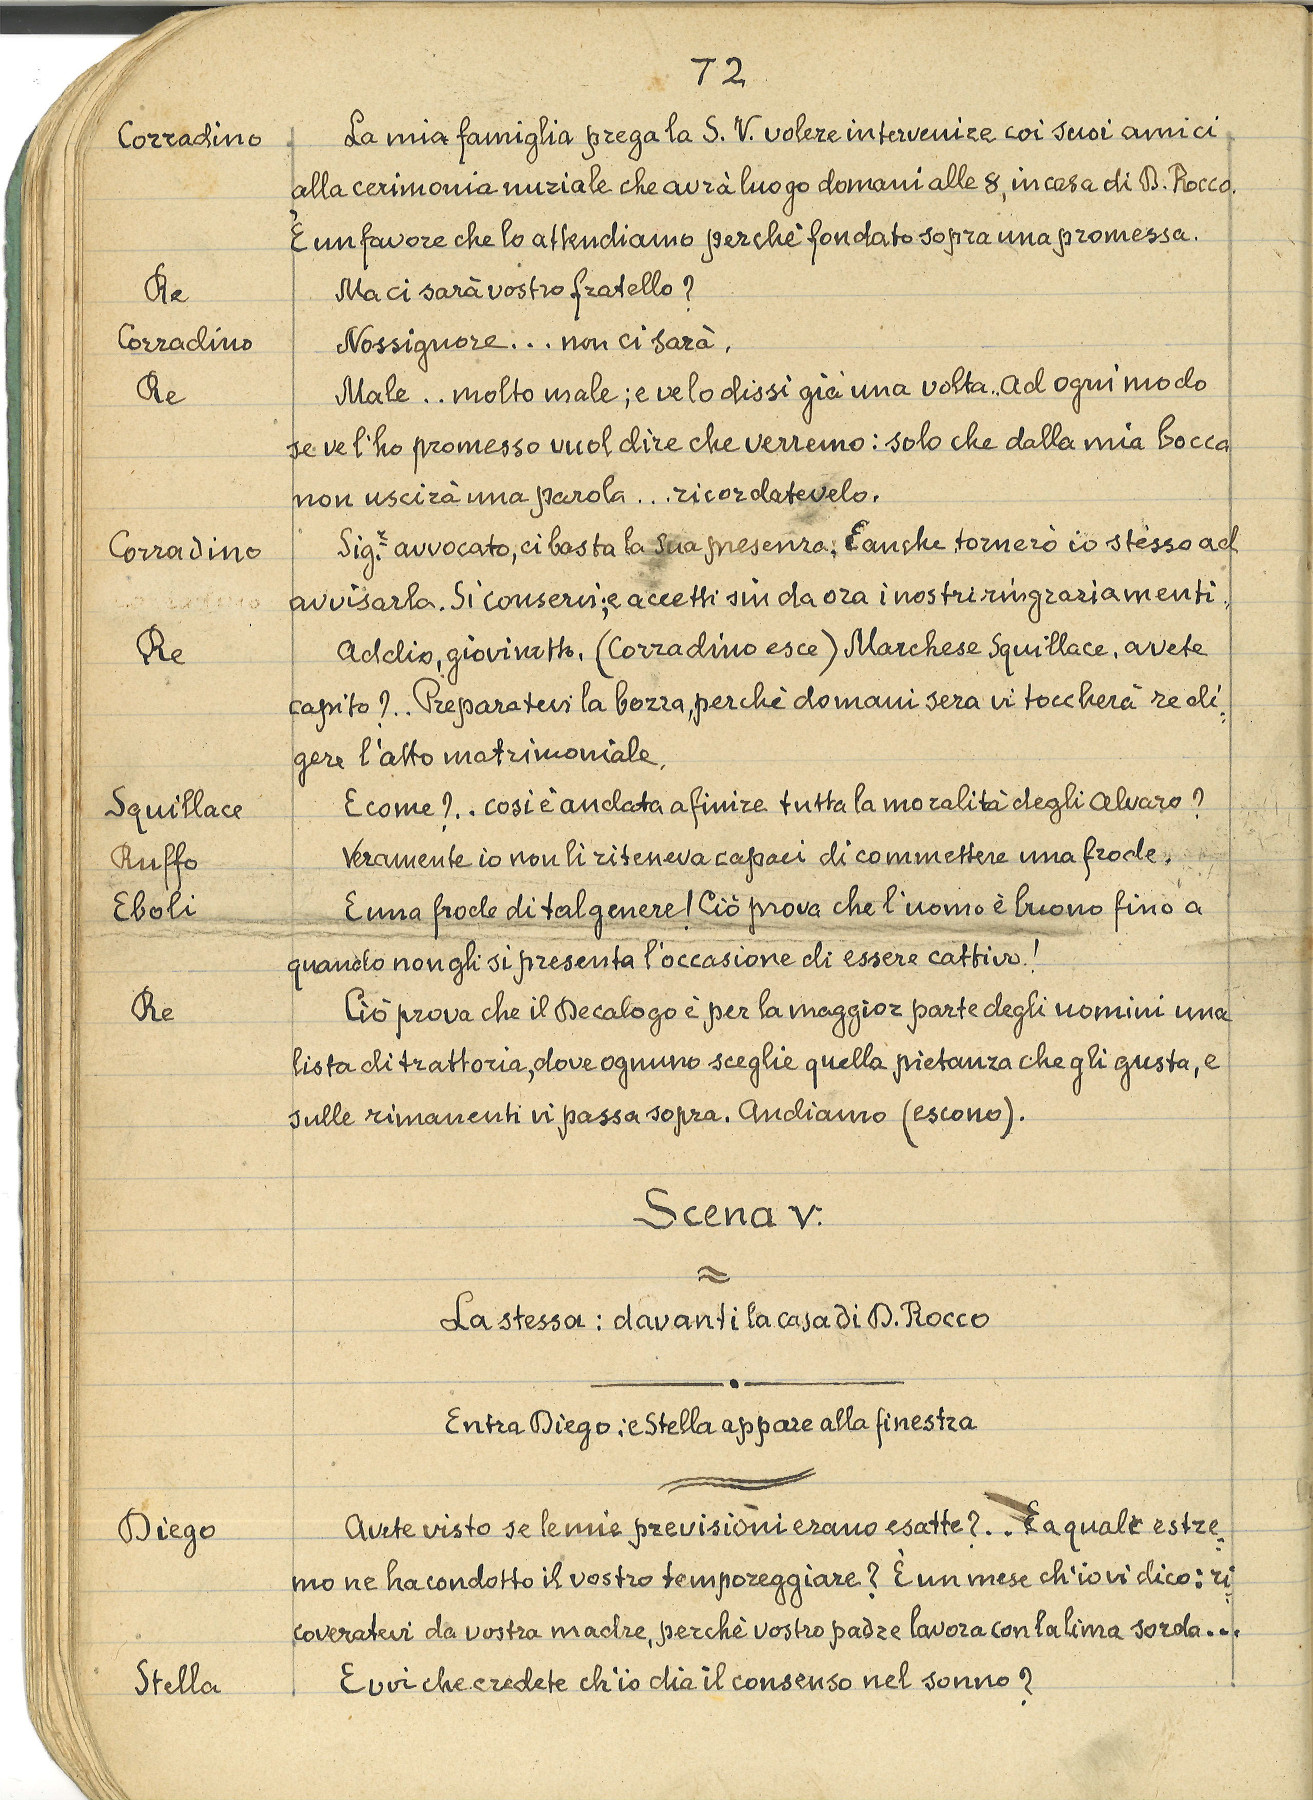 72
Corradino La mia famiglia prega la S. V. volere intervenire coi suoi amici
alla cerimonia nuziale che avrà luogo domani alle 8, in casa di D. Rocco.
È un favore che lo attendiamo perché fondato sopra una promessa.
Re Ma ci sarà vostro fratello?
Corradino Nossignore... non ci sarà.
Re Male .. molto male; e ve lo dissi già una volta.. Ad ogni modo
se ve l'ho promesso vuol dire che verremo: solo che dalla mia bocca
non uscirà una parola ... ricordatevelo.
Corradino Sig.r avvocato, ci basta la sua presenza. E anche tornerò io stesso ad
avvisarla. Si conservi; e accetti sin da ora i nostri ringraziamenti.
Re Addio, giovinetto. (Corradino esce) Marchese Squillace, avete
capito?.. Preparatevi la bozza, perchè domani sera vi toccherà redi=
gere l'atto matrimoniale.
Squillace E come?.. così è andata a finire tutta la moralità degli Alvaro?
Ruffo Veramente io non li riteneva capaci di commettere una frode.
Eboli E una frode di tal genere! Ciò prova che l'uomo è buono fino a
quando non gli si presenta l'occasione di essere cattivo!
Re Ciò prova che il Decalogo è per la maggior parte degli uomini una
lista di trattoria, dove ognuno sceglie quella pietanza che gli gusta, e
sulle rimanenti vi passa sopra. Andiamo (escono).
Scena V.
La stessa: davanti la casa di D. Rocco
Entra Diego: e Stella appare alla finestra
Diego Avete visto se le mie previsioni erano esatte?.. E a quale estre=
mo ne ha condotto il vostro temporeggiare? È un mese ch'io vi dico: ri=
coveratevi da vostra madre, perchè vostro padre lavora con la lima sorda...
Stella E voi che credete ch'io dia il consenso nel sonno?